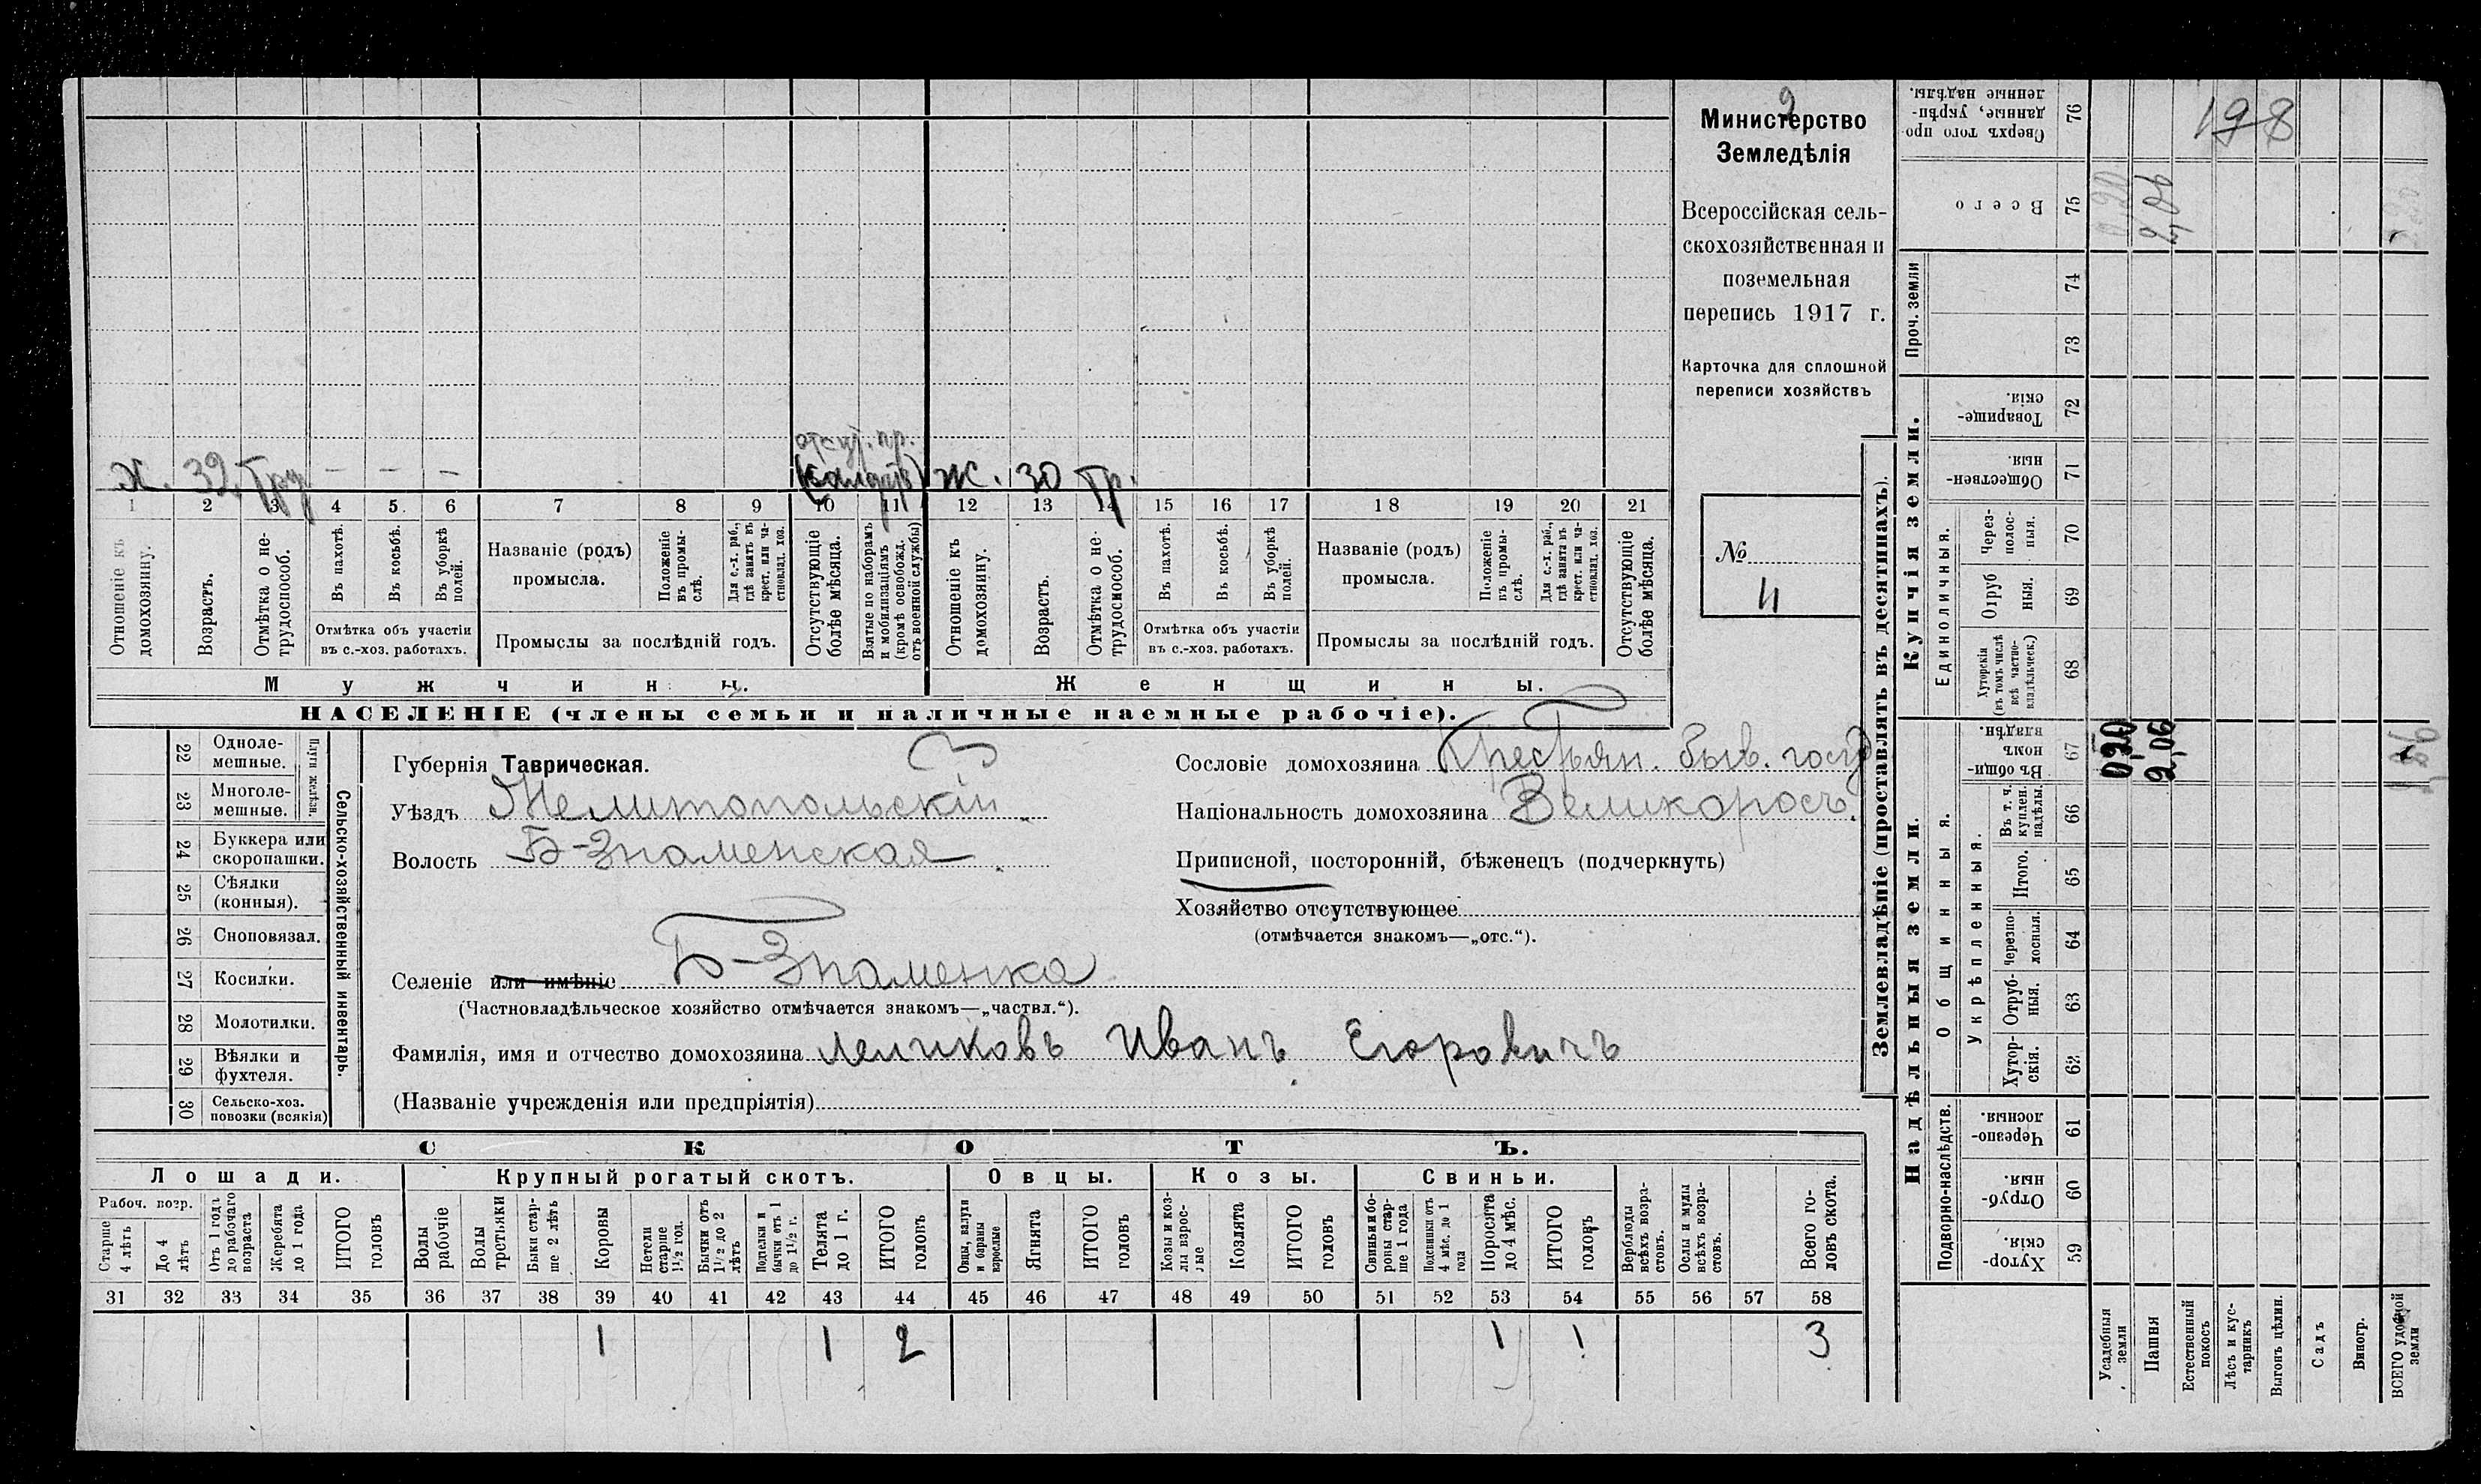 2
Министерство
Земледѣлія
Всероссійская сель-
скохозяйственная и
поземельная
перепись 1917 г.
Карточка для сплошной
переписи хозяйствъ
№
4
отсут. пр.
Х. 32. Тру — — — (солдатъ) Ж. 30 Тр.
1 2 3 4 5 6 7 8 9 10 11 12 13 14 15 16 17 18 19 20 21
Отношеніе къ домохозяину.
Возрастъ.
Отмѣтка о не-трудоспособ.
Въ пахотѣ.
Въ косьбѣ.
Въ уборкѣ полей.
Отмѣтка объ участіи
въ с.-хоз. работахъ.
Названіе (родъ)
промысла.
Положеніе въ промы-слѣ.
Для с.-х. раб., гдѣ занятъ въ крест. или ча-стновлад. хоз.
Промыслы за послѣдній годъ.
Отсутствующіе болѣе мѣсяца.
Взятые по наборамъ и мобилизаціямъ (кромѣ освобожд. отъ военной службы)
Отношеніе къ домохозяину.
Возрастъ.
Отмѣтка о не-трудоспособ.
Въ пахотѣ.
Въ косьбѣ.
Въ уборкѣ полей.
Отмѣтка объ участіи
въ с.-хоз. работахъ.
Названіе (родъ)
промысла.
Положеніе въ промы-слѣ.
Для с.-х. раб., гдѣ занята въ крест. или ча-стновлад. хоз.
Промыслы за послѣдній годъ.
Отсутствующіе болѣе мѣсяца.
Мужчины.
Женщины.
НАСЕЛЕНІЕ (члены семьи и наличные наемные рабочіе).
Сельско-хозяйственный инвентарь.
Плуги желѣзн.
22 Одноле-мешные.
23 Многоле-мешные.
24 Буккера или скоропашки.
25 Сѣялки (конныя).
26 Сноповязал.
27 Косилки.
28 Молотилки.
29 Вѣялки и фухтеля.
30 Сельско-хоз. повозки (всякія)
Губернія Таврическая.
Уѣздъ Мелитопольскій
Волость Б-Знаменская
Сословіе домохозяина Крестьян. быв. госуд
Національность домохозяина Великоросъ.
Приписной, посторонній, бѣженецъ (подчеркнуть)
Хозяйство отсутствующее
(отмѣчается знакомъ—„отс.“).
Селеніе или имѣніе Б-Знаменка
(Частновладѣльческое хозяйство отмѣчается знакомъ—„частвл.“).
Фамилія, имя и отчество домохозяина Леликовъ Иванъ Егоровичъ
(Названіе учрежденія или предпріятія)
СКОТЪ.
Лошади. Крупный рогатый скотъ. Овцы. Козы. Свиньи.
Рабоч. возр.
Старше 4 лѣтъ
До 4 лѣтъ
Отъ 1 годъ до рабочаго возраста
Жеребята до 1 года
ИТОГО головъ
Волы рабочіе
Волы третьяки
Быки стар-ше 2 лѣтъ
Коровы
Нетели старше 1½ год.
Бычки отъ 1½ до 2 лѣтъ
Подтелки и бычки отъ 1 до 1½ г.
Телята до 1 г.
ИТОГО головъ
Овцы, валухи и бараны взрослые
Ягнята
ИТОГО головъ
Козы и коз-лы взрос-лые
Козлята
ИТОГО головъ
Свиньи и бо-ровы стар-ше 1 года
Подсвинки отъ 4 мѣс. до 1 года
Поросята до 4 мѣс.
ИТОГО головъ
Верблюды всѣхъ возра-стовъ.
Ослы и мулы всѣхъ возра-стовъ.
Всего го-ловъ скота.
31 32 33 34 35 36 37 38 39 40 41 42 43 44 45 46 47 48 49 50 51 52 53 54 55 56 57 58
1 1 2 1 1 3
Землевладѣніе (проставлять въ десятинахъ).
Купчія земли.
Надѣльныя земли.
198
76 Сверхъ того про-данные, укрѣп-ленные надѣлы.
75 Всего 0,20 2,06
Проч. земли
74
73
72 Товарище-скія.
71 Обществен-ныя.
Единоличныя.
70 Через-полос-ныя.
69 Отруб ныя.
68 Хуторскія (въ томъ числѣ всѣ частно-владѣльческ.)
67 Въ общи-номъ владѣн. 0,20 2,06
Общинныя.
Укрѣпленныя.
66 Въ т. ч. куплен. надѣлы.
65 Итого.
64 Черезпо-лосныя.
63 Отруб-ныя.
62 Хутор-скія.
Подворно-наслѣдств.
61 Черезпо-лосныя.
60 Отруб-ныя.
59 Хутор-скія.
Усадебныя земли
Пашня
Естественный покосъ
Лѣсъ и кус-тарникъ
Выгонъ цѣлин.
Садъ
Виногр.
ВСЕГО удобной земли